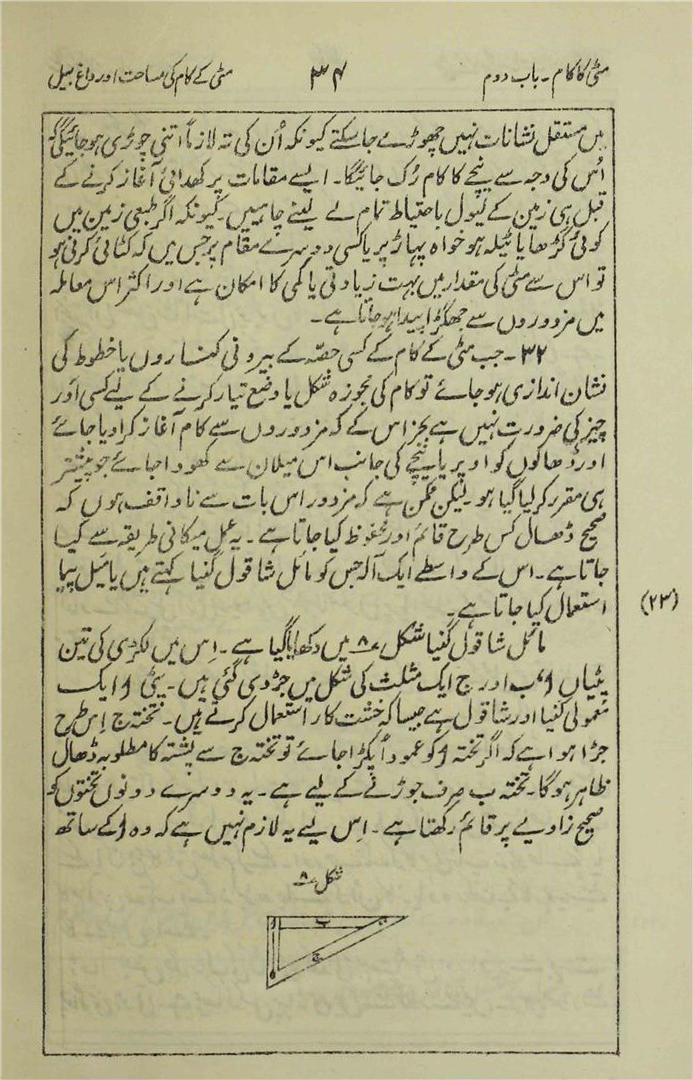 مٹی کا کام - باب دوم
۳۴
مٹی کے کام کی مساحت اور داغ بیل
میں مستقل نشانات نہیں چھوڑے جا سکتے کیونکہ اُن کی تہ لازماً اتنی چوڑی ہو جائیگی کہ
اُس کی وجہ سے نیچے کا کام رُک جائیگا۔ ایسے مقامات پر کھدائی آغاز کرنے کے
قبل ہی زمین کے لیول با احتیاط تمام لے لینے چاہییں۔ کیونکہ اگر طبعی زمین میں
کوئی گڑھا یا ٹیلہ ہو خواہ پہاڑ پر یا کسی دوسرے مقام پر جس میں کہ کٹائی کرنی ہو
تو اس سے مٹی کی مقدار میں بہت زیادتی یا کمی کا امکان ہے اور اکثر اس معاملہ
میں مزدوروں سے جھگڑا پیدا ہو جاتا ہے۔
۳۲ - جب مٹی کے کام کے کسی حصّہ کے بیرونی کناروں یا خطوط کی
نشان اندازی ہو جائے تو کام کی مجوزہ شکل یا وضع تیار کرنے کے لیے کسی اَور
چیز کی ضرورت نہیں ہے بجز اس کے کہ مزدوروں سے کام آغاز کرا دیا جائے
اور ڈھالوں کو اوپر یا نیچے کی جانب اس میلان سے کھودا جائے جو پیشتر
ہی مقرر کر لیا گیا ہو۔ لیکن ممکن ہے کہ مزدور اس بات سے ناواقف ہوں کہ
صحیح ڈھال کس طرح قائم اور محفوظ کیا جاتا ہے۔ یہ عمل میکانی طریقہ سے کیا
جاتا ہے۔ اس کے واسطے ایک آلہ جس کو مائل شاقول گنیا کہتے ہیں یا میل پیما
استعمال کیا جاتا ہے۔
(۲۳)
مائل شاقول گنیا شکل ۸ میں دکھایا گیا ہے۔ اِس میں لکڑی کی تین
پٹیاں ا، ب اور ج ایک مثلث کی شکل میں جڑ دی گئی ہیں۔ پٹی ا ایک
معمولی گنیا اور شاقول ہے جیسا کہ خشت کار استعمال کرتے ہیں۔ تختہ ج اِس طرح
جڑا ہوا ہے کہ اگر تختہ ا کو عموداً پکڑا جائے تو تختہ ج سے پشتہ کا مطلوبہ ڈھال
ظاہر ہوگا۔ تختہ ب صرف جوڑنے کے لیے ہے۔ یہ دوسرے دونوں تختوں کو
صحیح زاویے پر قائم رکھتا ہے۔ اِس لیے یہ لازم نہیں ہے کہ وہ ا کے ساتھ
شکل ۸
ب
ا
ج